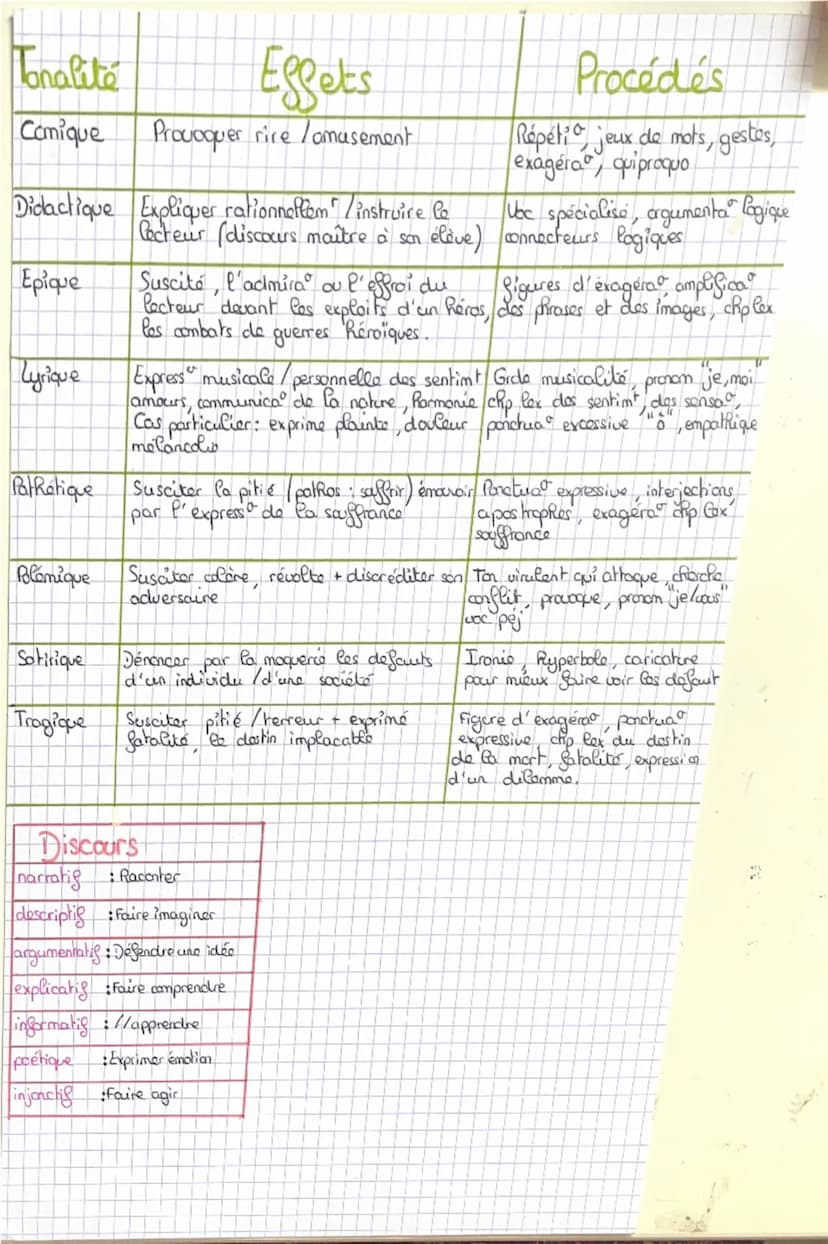 Tonalité Effets Procédés
Comique Provoquer rire / amusement Répéti°, jeux de mots, gestes,
exagéra°, quiproquo
Didactique Expliquer rationnellemt / instruire le Voc spécialisé, argumenta° logique
lecteur (discours maître à son élève) connecteurs logiques
Epique Suscité, l'admira° ou l'effroi du figures d'éxagéra°, amplifica°
lecteur devant les exploits d'un héros, des phrases et des images, chp lex
les combats de guerres héroïques.
Lyrique Express° musicale / personnelle des sentimt Grde musicalité, pronom "je, moi"
amours, communica° de la nature, harmonie chp lex des sentimt, des sensa°,
Cas particulier : exprime plainte, douleur ponctua° excessive "ô", empathique
mélancolie
Pathétique Susciter la pitié (pathos : souffrir) émouvoir Ponctua° expressive, interjections,
par l'express° de la souffrance apostrophes, exagéra° chp lex
souffrance
Polémique Susciter colère, révolte + discréditer son Ton virulent qui attaque, cherche
adversaire conflit, provoque, pronom "je/vous"
voc péj
Satirique Dénoncer par la moquerie les défauts Ironie, hyperbole, caricature
d'un individu / d'une société pour mieux faire voir les défaut
Tragique Susciter pitié / terreur + exprimé Figure d'exagéra°, ponctua°
fatalité, le destin implacable expressive, chp lex du destin
de la mort, fatalité, expression
d'un dilemme.
Discours
narratif : Raconter
descriptif : Faire imaginer
argumentatif : Défendre une idée
explicatif : Faire comprendre
informatif : // apprendre
poétique : Exprimer émotion
injonctif : Faire agir